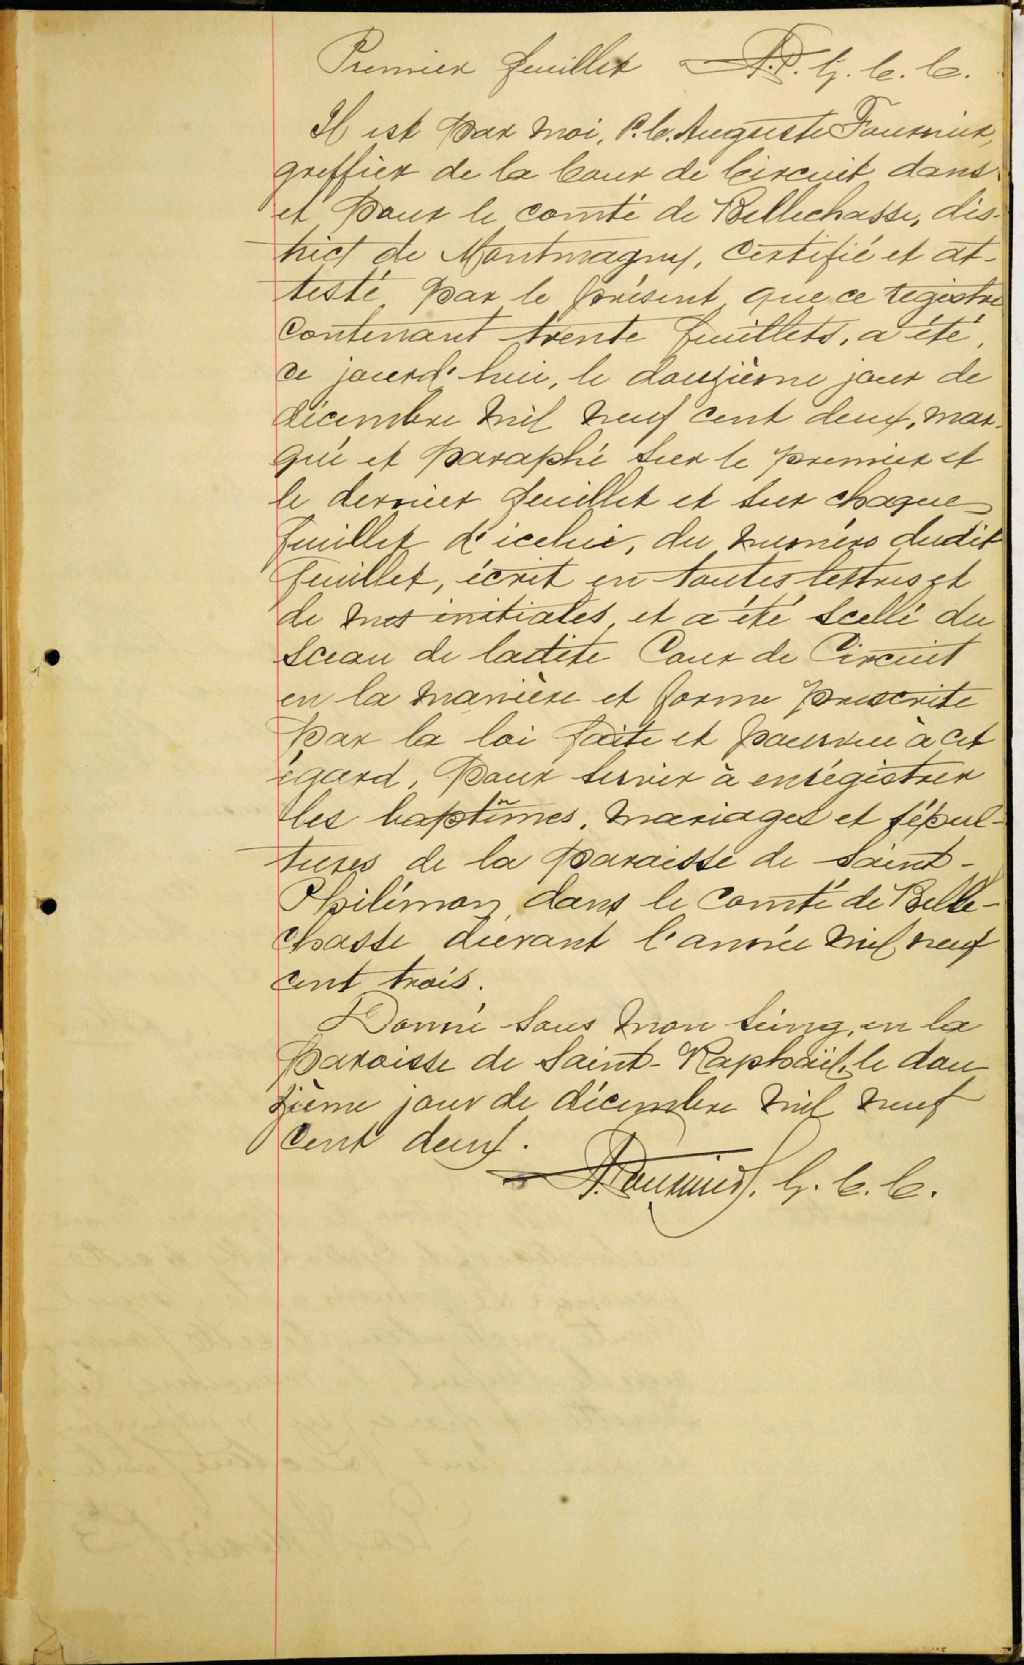 Premier feuillet A.F. G. C. C.
Il est par moi, P. C. Auguste Fournier,
greffier de la Cour de Circuit dans
et pour le comté de Bellechasse, dis-
trict de Montmagny, certifié et at-
testé par le présent que ce registre
contenant trente feuillets, a été,
ce jourd'hui, le douzième jour de
décembre mil neuf cent deux, mar-
qué et paraphé sur le premier et
le dernier feuillet et sur chaque
feuillet d'icelui, du numéro dudit
feuillet, écrit en toutes lettres et
de mes initiales, et a été scellé du
sceau de ladite Cour de Circuit
en la manière et forme prescrite
par la loi faite et pourvue à cet
égard, pour servir à enrégistrer
les baptêmes, mariages et sépul-
tures de la paroisse de Saint-
Philémon, dans le Comté de Belle-
chasse durant l'année mil neuf
cent trois.
Donné sous mon seing, en la
paroisse de Saint-Raphaël, le dou-
zième jour de décembre mil neuf
cent deux.
A. Fournier. G. C. C.